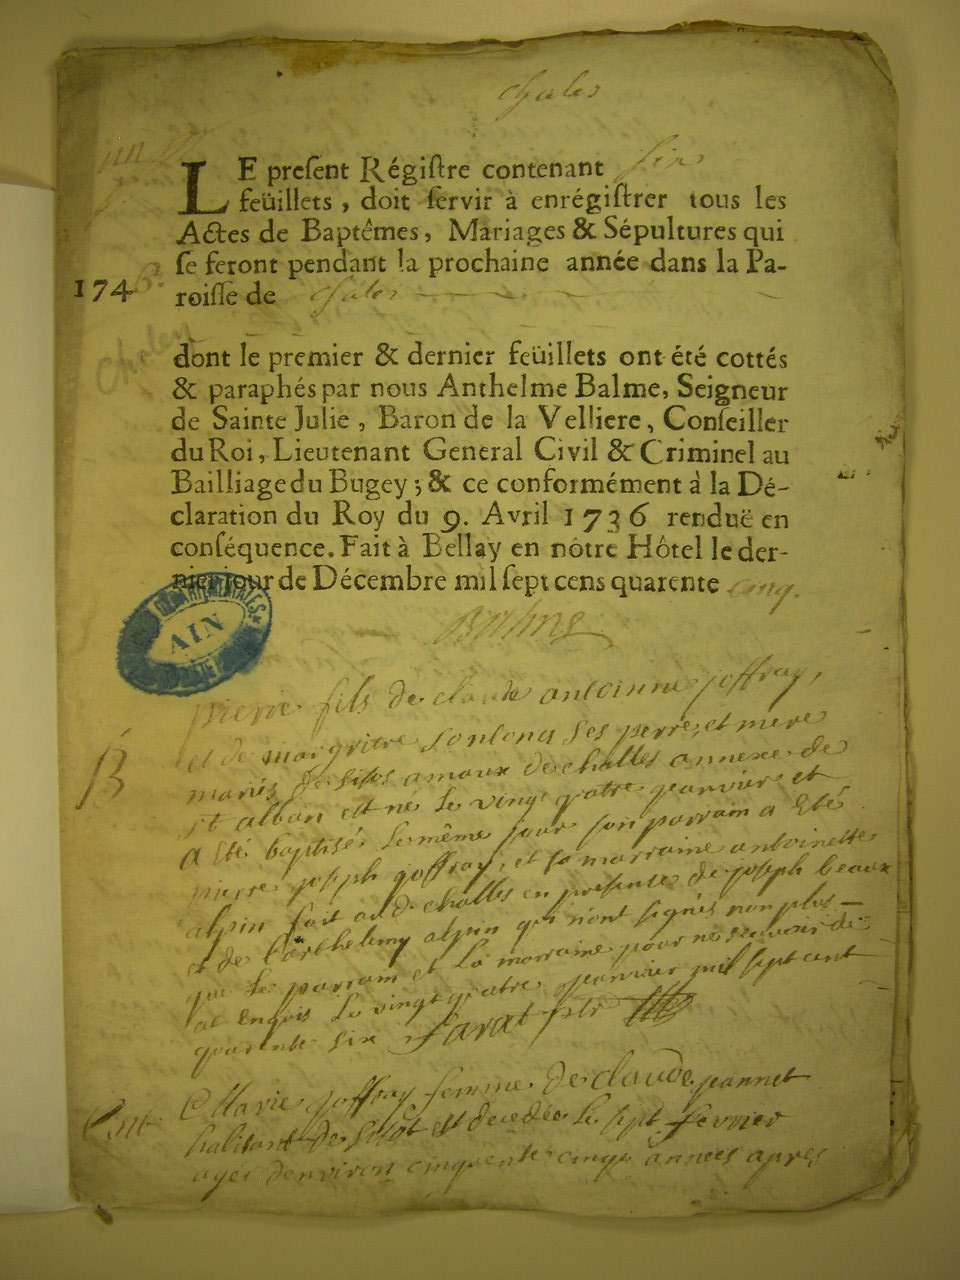 Chales
LE preſent Régiſtre contenant six
feüillets, doit ſervir à enrégiſtrer tous les
Actes de Baptêmes, Mariages & Sépultures qui
ſe feront pendant la prochaine année dans la Pa-
1746. roiſſe de Chales
Chaley
dont le premier & dernier feüillets ont été cottés
& paraphés par nous Anthelme Balme, Seigneur
de Sainte Julie, Baron de la Velliere, Conſeiller
du Roi, Lieutenant General Civil & Criminel au
Bailliage du Bugey; & ce conformément à la Dé-
claration du Roy du 9. Avril 1736 renduë en
conſéquence. Fait à Bellay en nôtre Hôtel le der-
nier jour de Décembre mil ſept cens quarente cinq.
DEPARTEMENTALES
AIN
Balme
B
pierre fils de claude antoinne joffray,
et de margritte ses perre, et mere
mariés de amaux de challes annexe de
st alban est né le vingt quatre janvier et
a eté baptisé le même jour son parrain a eté
pierre joseph joffray, et sa marraine antoinette
alpin fait au d challes en presente de joseph beaux
et de barthelemy alpin qui n'ont signés non plus
que le parrain et la marraine pour ne sçavoir de
ce enquis le vingt quatre janvier mil sept cent
quarente six Farat ptr
Ent
Marie joffray femme de claude jannet
habitant de est decedée le sept fevrier
agée denviron cinquente cinq années apres